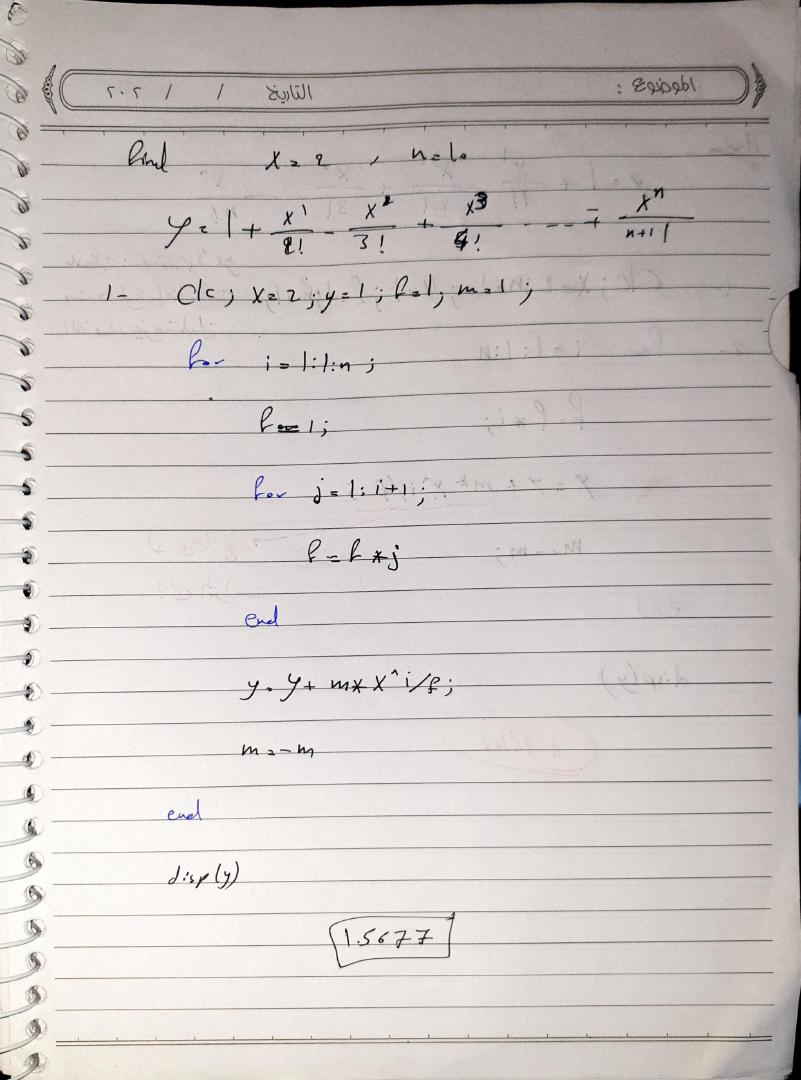 الموضوع : التاريخ / / ٢٠٢
find x=2 , n=10
y=1+ x^1/2! - x^2/3! + x^3/4! ---- ∓ x^n/n+1!
1- clc; x=2; y=1; f=1; m=1;
for i=1:1:n;
f=1;
for j=1:i+1;
f=f*j
end
y=y+m*x^i/f;
m=-m
end
disp(y)
1.5677